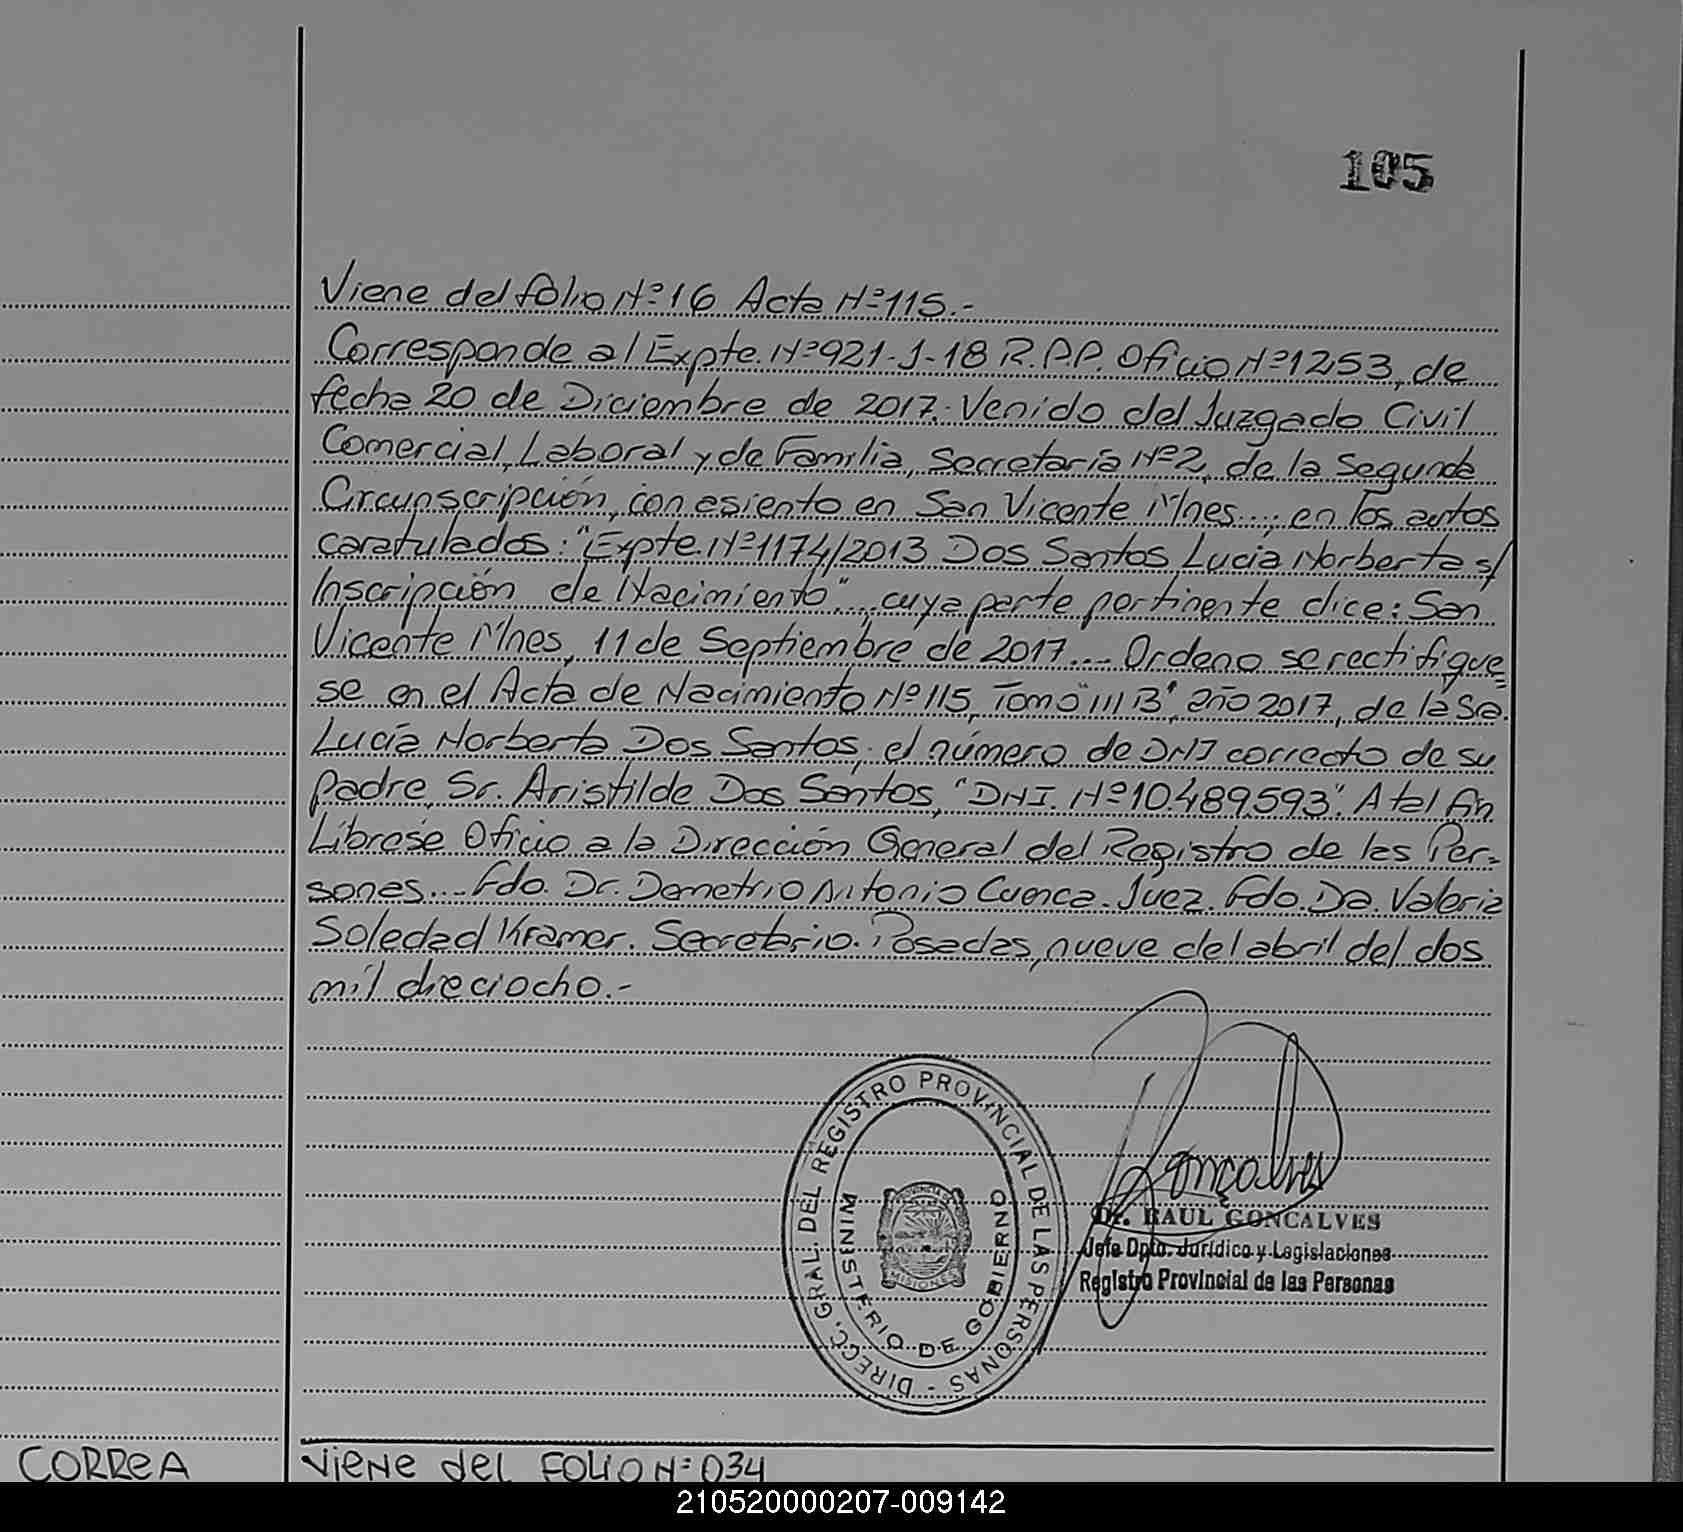 105
Viene del folio Nº 16 Acta Nº 115.-
Corresponde al Expte. Nº 921-J-18 R.P.P. Oficio Nº 1253, de
fecha 20 de Diciembre de 2017. Venido del Juzgado Civil
Comercial, Laboral y de Familia, Secretaría Nº 2, de la Segunda
Circunscripción, con asiento en San Vicente Mnes..., en los autos
caratulados: "Expte. Nº 1174/2013 Dos Santos Lucia Norberta s/
Inscripción de Nacimiento"..., cuya parte pertinente dice: San
Vicente Mnes, 11 de Septiembre de 2017.... Ordeno se rectifique=
se en el Acta de Nacimiento Nº 115, Tomo "III B", año 2017, de la Sa.
Lucía Norberta Dos Santos, el número de DNI correcto de su
padre, Sr. Aristilde Dos Santos, "DNI. Nº 10.489.593". A tal fin
Líbrese Oficio a la Dirección General del Registro de las Per=
sonas.... Fdo. Dr. Demetrio Antonio Cuenca. Juez. Fdo. Da. Valeria
Soledad Kramer. Secretario. Posadas, nueve del abril del dos
mil dieciocho.-
DIRECC. GRAL. DEL REGISTRO PROVINCIAL DE LAS PERSONAS -
MINISTERIO DE GOBIERNO
PROVINCIA DE
MISIONES
Gonçalves
Dr. RAUL GONCALVES
Jefe Dpto. Jurídico y Legislaciones
Registro Provincial de las Personas
CORREA
VIENE DEL FOLIO Nº 034
210520000207-009142